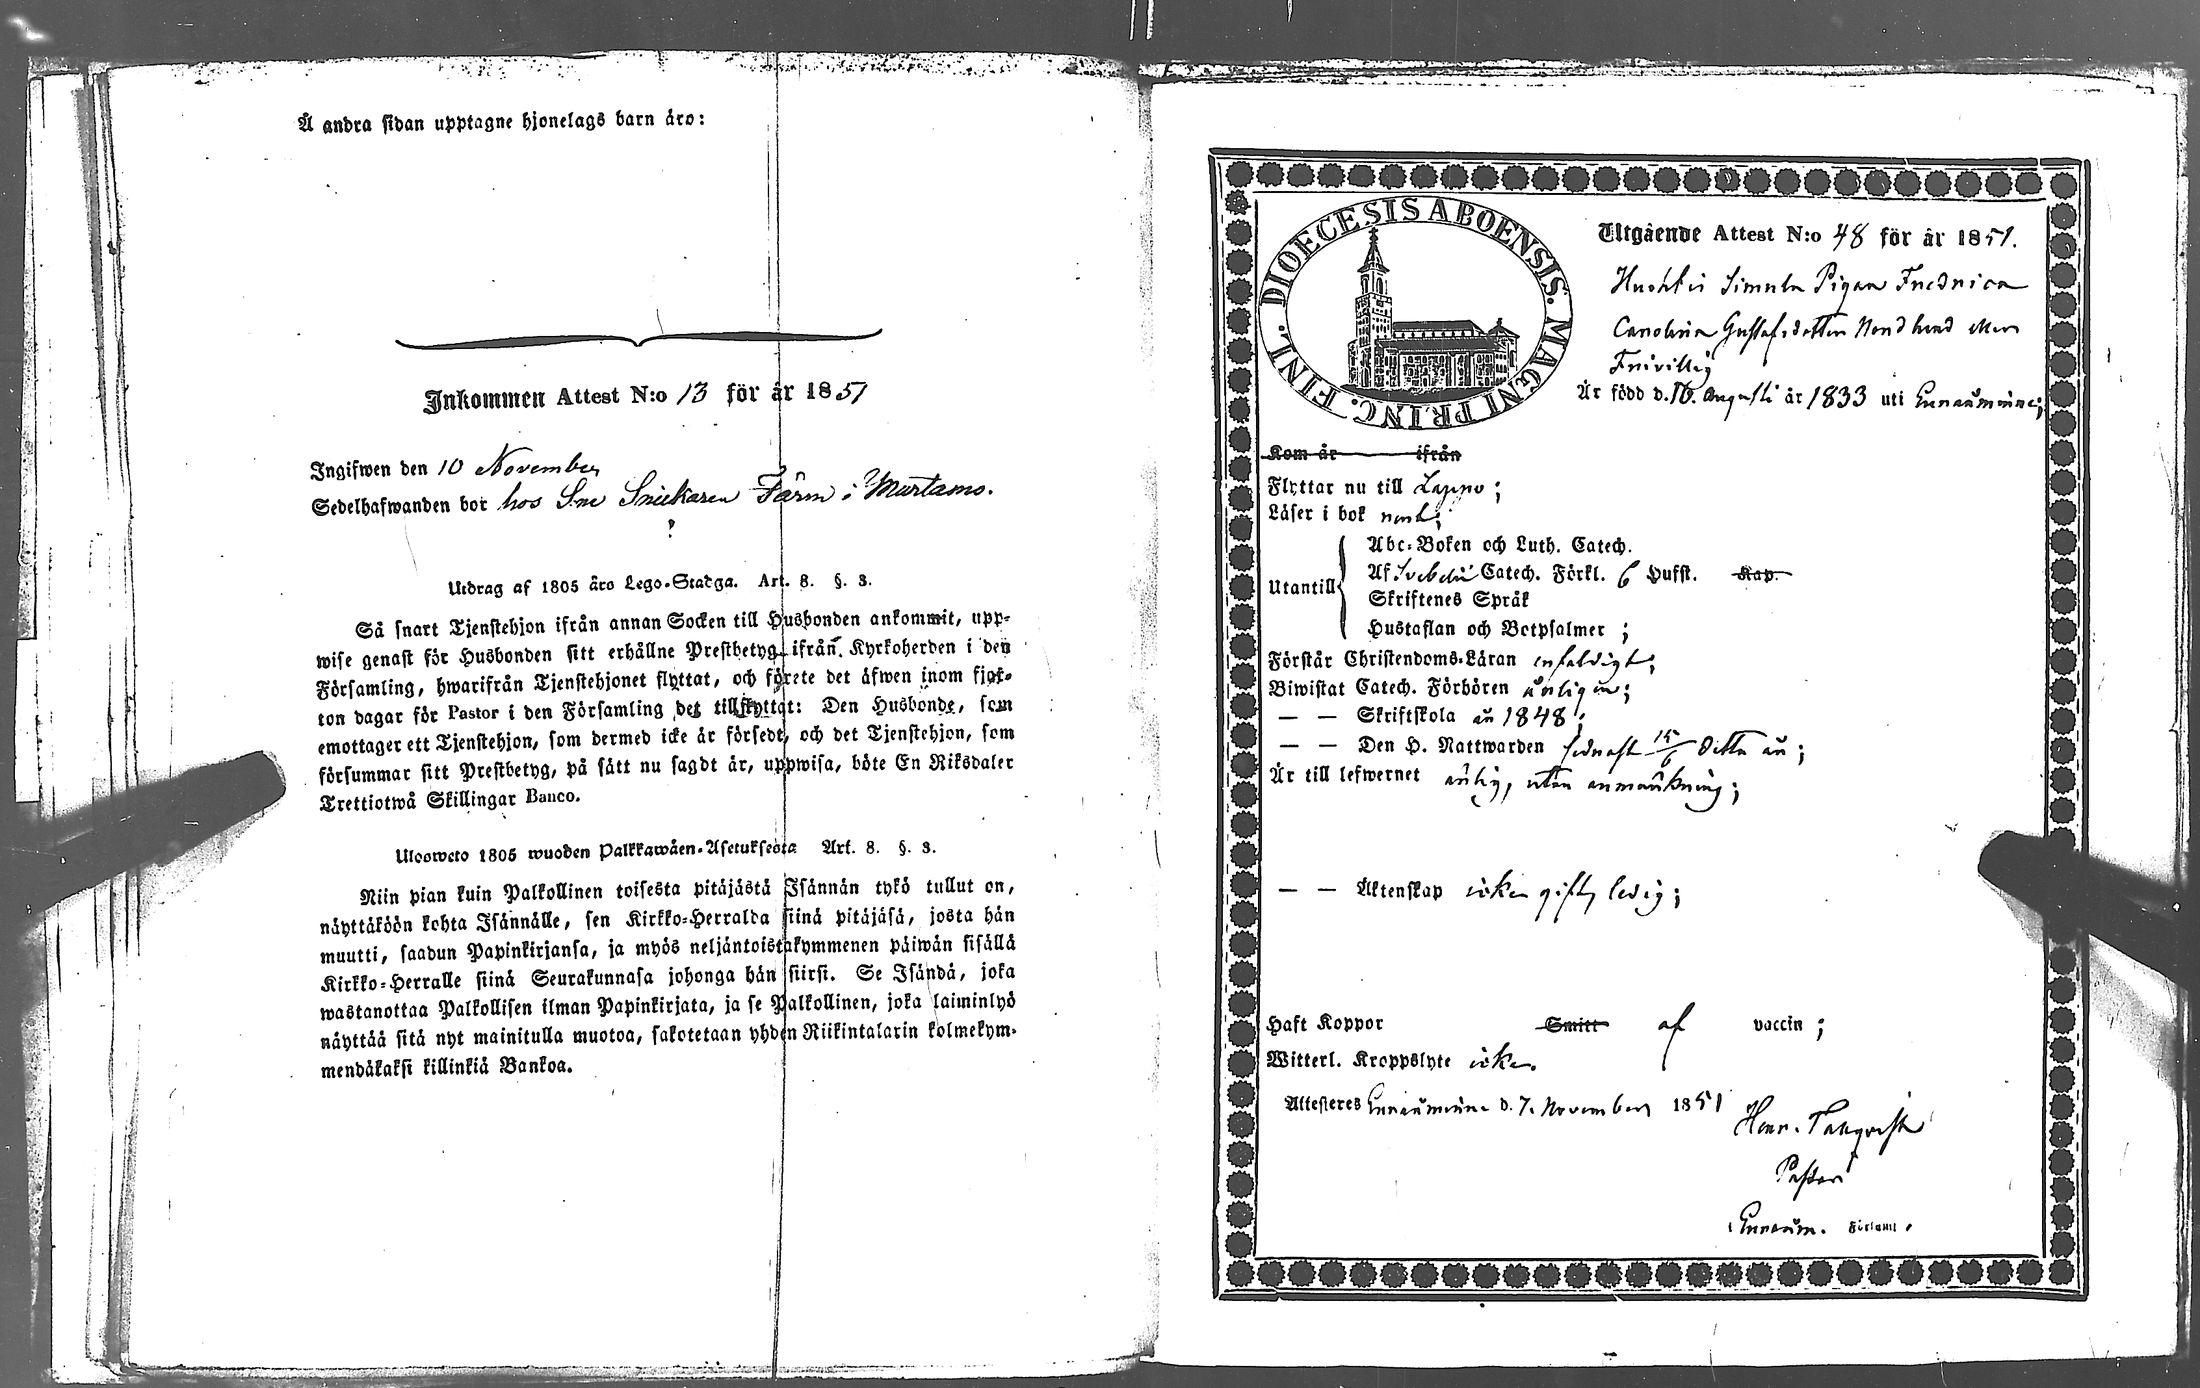 Å andra sidan upptagne hjonelags barn äro:
Inkommen Attest N:o 13 för år 1851
Ingifwen den 10 November
Sedelhafwanden bor hos Sne Snickaren Färm i Murtamo.
Utdrag af 1805 års Lego-Stadga. Art. 8. §. 3.
Så snart Tjenstehjon ifrån annan Socken till Husbonden ankommit, upp-
wise genast för Husbonden sitt erhållne Prestbetyg ifrån Kyrkoherden i den
Församling, hwarifrån Tjenstehjonet flyttat, och förete det äfwen inom fjor-
ton dagar för Pastor i den Församling det tillflyttat: Den Husbonde, som
emottager ett Tjenstehjon, som dermed icke är försedt, och det Tjenstehjon, som
försummar sitt Prestbetyg, på sätt nu sagdt är, uppwisa, böte En Riksdaler
Trettiotwå Skillingar Banco.
Ulosweto 1805 wuoden Palkkawäen-Asetuksesta Art. 8. §. 3.
Niin pian kuin Palkollinen toisesta pitäjästä Isännän tykö tullut on,
näyttäköön kohta Isännälle, sen Kirkko-Herralda siinä pitäjäsä, josta hän
muutti, saadun Papinkirjansa, ja myös neljäntoistakymmenen päiwän sisällä
Kirkko-Herralle siinä Seurakunnasa johonga hän siirsi. Se Isändä, joka
wastanottaa Palkollisen ilman Papinkirjata, ja se Palkollinen, joka laiminlyö
näyttää sitä nyt mainitulla muotoa, sakotetaan yhden Riikintalarin kolmekym-
mendäkaksi killinkiä Bankoa.
DIOECESIS ABOENSIS. MAGNI PRINC. FINL.
Utgående Attest N:o 48 för år 1851.
Simula Pigan Fredrica
Carolina Gustafsdotter Nordlund eller
Frivillig
Är född d. 16. Augusti år 1833 uti Ennäuminne;
Kom år ifrån
Flyttar nu till Lappo;
Läser i bok
Utantill
Abc-Boken och Luth. Catech.
Af Svebelii Catech. Förkl. 6 Hufst. Kap.
Skriftenes Språk
Hustaflan och Botpsalmer ;
Förstår Christendoms-Läran enfaldigt;
Biwistat Catech. Förhören årligen;
— — Skriftskola år 1848;
— — Den H. Nattwarden sednast 15/6 ditto år;
Är till lefwernet ärlig, utan anmärkning;
— — Äktenskap icke gift, ledig;
Haft Koppor Smitt af vaccin ;
Witterl. Kroppslyte icke.
Attesteres d. 7. November 1851
Henr. Tallqvist
Pastor
Församl.